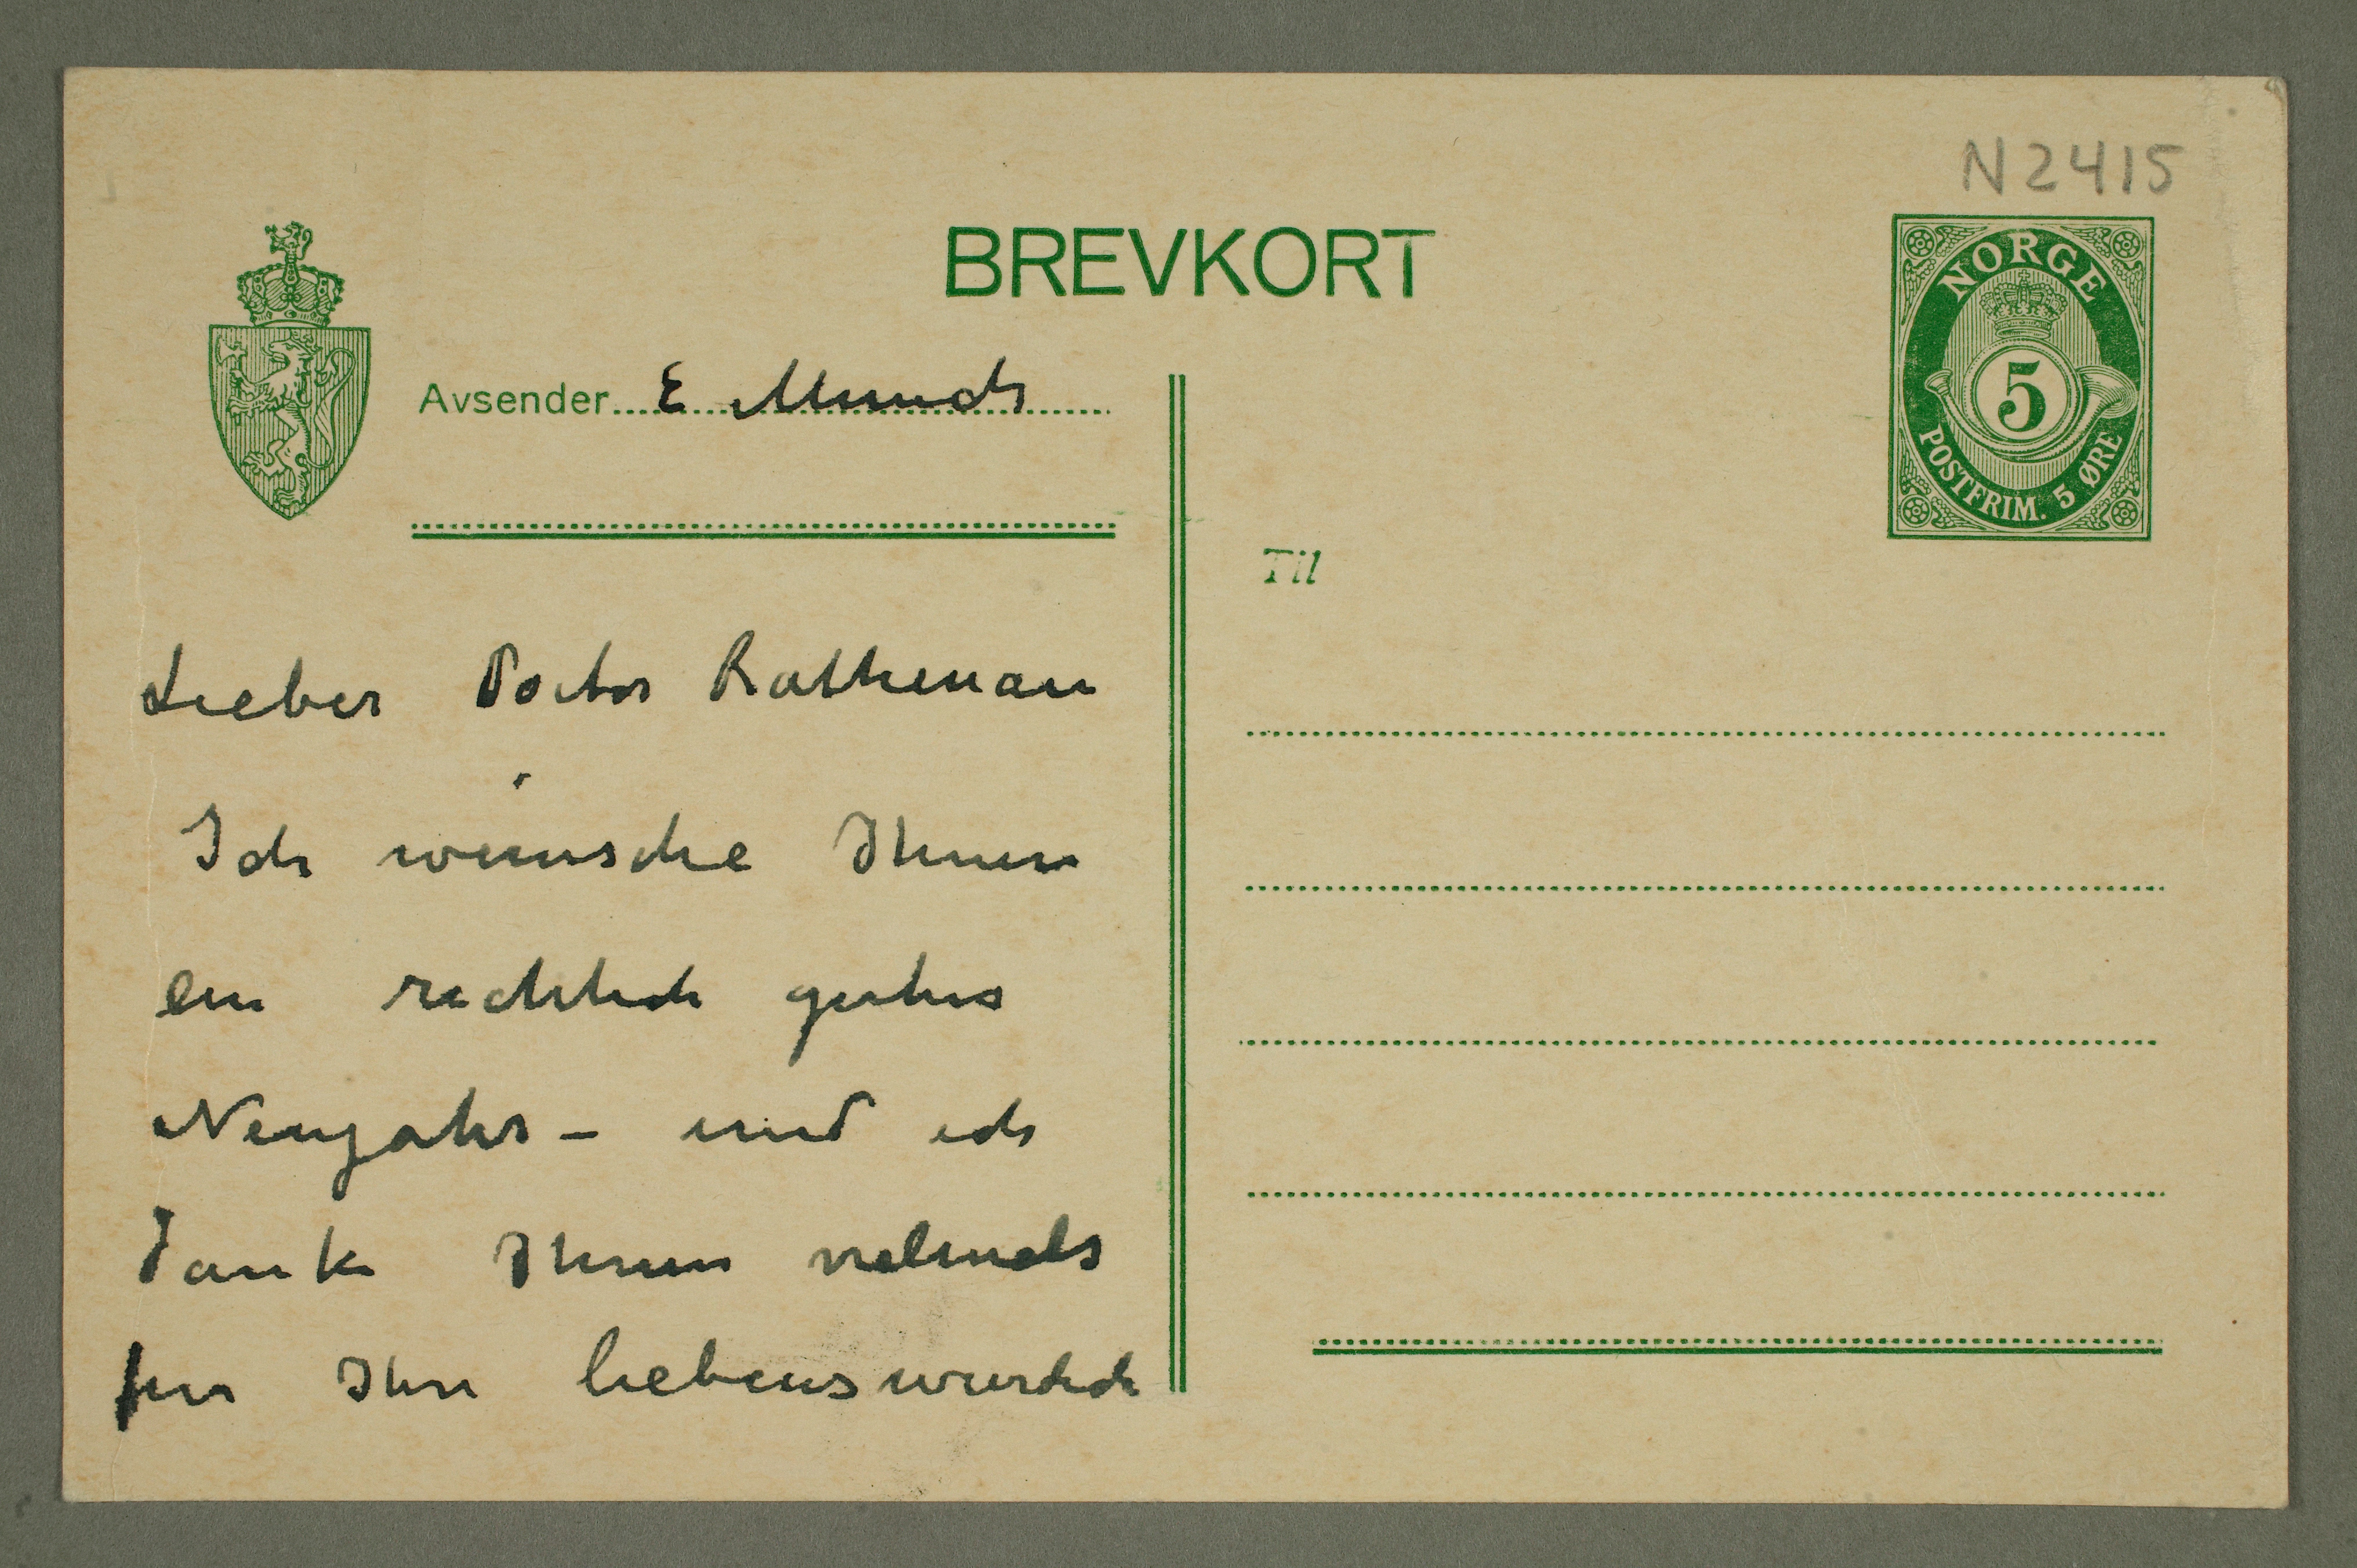 N 2415
BREVKORT
NORGE
5
POSTFRIM. 5 ØRE
Avsender E Munch
Til
Lieber Doctor Rathenau
Ich wunsche Ihnen
ein rechtlich gutes
Neujahr – und ich
danke Ihnen vielmals
fur Ihre liebenswurdich